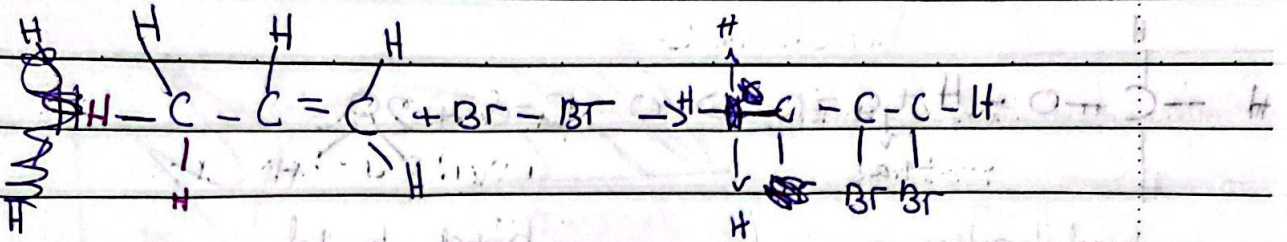 H H H H
H - C - C = C + Br - Br → H - C - C - C - H
H H H Br Br
H H